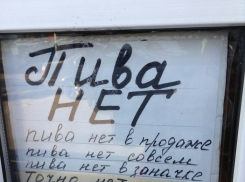 Пива
НЕТ
пива нет в продаже
пива нет совсем
пива нет в заначке
Точно нет